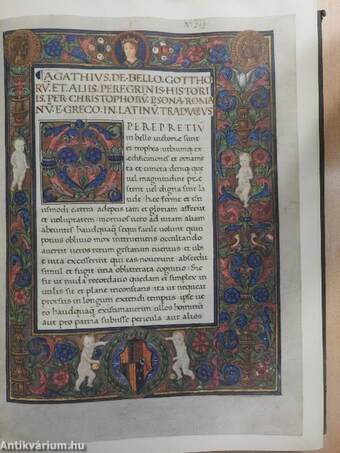 AGATHIVS.DE.BELLO.GOTTHO
RV.ET.ALIIS.PEREGRINIS.HISTORI
IS.PER.CHRISTOPHORV.PSONA.ROMA
NV.E.GRECO.IN.LATINV.TRADVCTVS
PEREPRETIV
m bello victorie sunt
et trophea urbiumq ex
edificationes et ornamta
et cuncta deniq que
uel magnitudine prestent
uel digna sint lau
de hec ferme et siusmodi
cetera adeptis tam et gloriam afferut
et uoluptatem mortuos uero ad uitam aliam
abeuntes haudquaq sequi facile uolunt quin
potius obliuio mox interueniens occultando
auertit ueros rerum gestarum euentus et ubi
e uita excesserint qui eas nouerunt abscedit
simul et fugit una obliterata cognitio Sic
sit ut nuda recordatio quedam et simplex in
utilis sit et plane inconstans ita ut nequeat
prorsus in longum extendi tempus ipse ue
ro haudquaq existimauerim ullos hominu
aut pro patria subiisse pericula aut alios
Antikvárium.hu